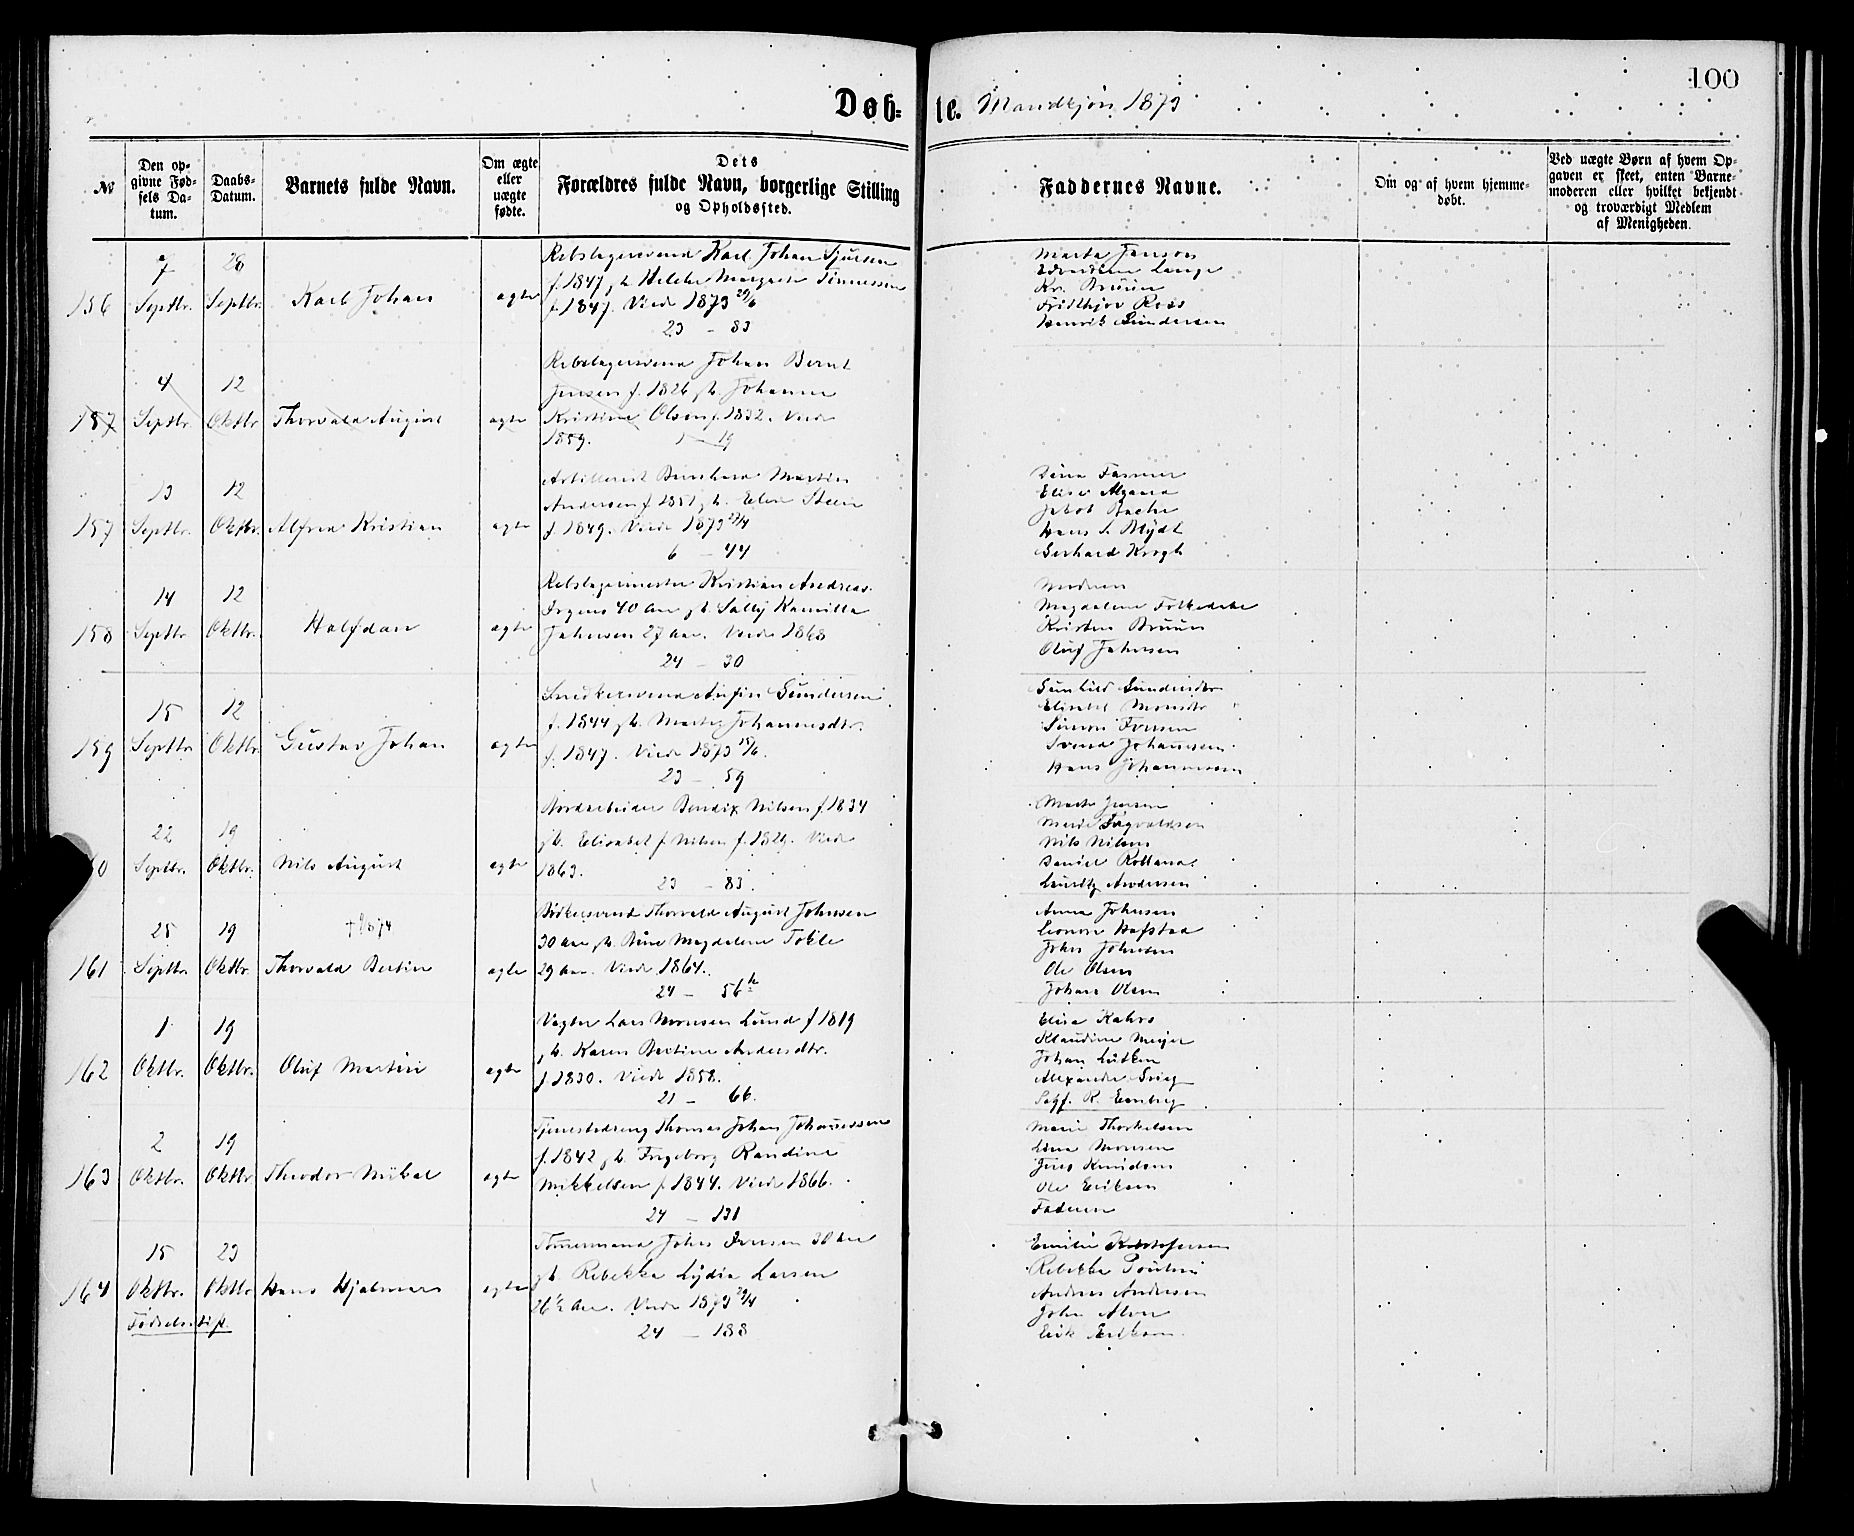 100
Døb-te. Mandkjøn 1873
№
Den op-
givne Fød-
sels Da-
tum.
Daabs-
Datum.
Barnets fulde Navn.
Om ægte
eller
uægte
fødte.
Dets
Forældres fulde Navn, borgerlige Stilling
og Opholdssted.
Faddernes Navne.
Om og af hvem hjemme-
døbt.
Ved uægte Børn af hvem Op-
gaven er skeet, enten Barne-
moderen eller hvilket bekjendt
og troværdigt Medlem
af Menigheden.
156
7
Septbr.
28
Septbr.
Karl Johan
ægte
Rebslagersvend Karl Johan
f. 1847, h. Margrete Tønnessen
f. 1847. Viede 1873 29/6
23 – 83
Marta Jansen
Lange
Kr. Bruun
Fridthjov Ross
Henrik Gundersen
157
4
Septbr.
12
Oktbr
Thorvald August
ægte
Rebslagersvend Johan Bernt
Jensen f. 1826, h. Johanne
Kristine Olsen f. 1832. Viede
1859.
1 – 19
157
13
Septbr.
12
Oktbr.
Alfred Kristian
ægte
Artillerist Bernhard Martin
Andersen f. 1851, h. Elen Steen
f. 1849. Viede 1873 27/4
6 – 44
Fasmer
Elise
Jakob
Hans S. Mydt
Gerhard Krogh
158
14
Septbr
12
Oktbr.
Halfdan
ægte
Rebslagermester Kristian Andreas
Irgens 40 Aar, h. Sally Kamilla
Jahnsen 27 Aar. Viede 1868
24 – 30
Moderen
Magdalene
Kristen Bruun
Oluf Jahnsen
159
15
Septbr
12
Oktbr.
Gustav Johan
ægte
Snedkersvend Anfin Gundersen
f. 1844, h. Marta Johannesdtr.
f. 1847. Viede 1873 15/6.
23 – 59
Gunhild Gundersdtr
Elisabet Monsdtr
Simon Iversen
Svend Johannessen
Hans Johannessen
22
Septbr.
19
Oktbr.
Nils August
ægte
Jordarbeider Bendix Nilsen f. 1834
h. Elisabet f. Nilsen f. 1829. Viede
1863.
23 – 83.
Marte Jensen
Marie Ingvaldsen
Nils Nilsen
Daniel
Lauritz Andersen
161
25
Septbr.
19
Oktbr.
† 1874
Thorvald Bertin
ægte
Bødkersvend Thorvald August Johnsen
30 Aar, h. Magdalene Tokle
29 Aar. Viede 1864.
24 – 56 b
Anna Johnsen
Leonore Hafstad
John Johnsen
Ole Olsen
Johan Olsen
162
1
Oktbr.
19
Oktbr.
Oluf Martin
ægte
Vægter Lars Monsen Lund f. 1819
h. Karen Bertine Andersdtr.
f. 1830. Viede 1858.
21 – 66.
Elisa Kahrs
Klaudine Meyer
Johan Lütken
Alexander Grieg
163
2
Oktbr.
19
Oktbr
Theodor Mikal
ægte
Tjenestedreng Thomas Johan Johannessen
f. 1842, h. Ingeborg Randine
Mikkelsen f. 1844. Viede 1866.
24 – 131
Marie Thorkelsen
Lina Monsen
Jens Knudsen
Ole Eriksen
Faderen
164
15
Oktbr.
23
Oktbr
Fødselsstift.
Hans Hjalmar
ægte
Tømmermand Johan Iversen 30 Aar
h. Rebekka Lydia Larsen
26 1/2 Aar. Viede 1873 29/4
24 – 188
Emilie Kristofersen
Rebekka
Andreas Andersen
John Alver
Erik Eriksen